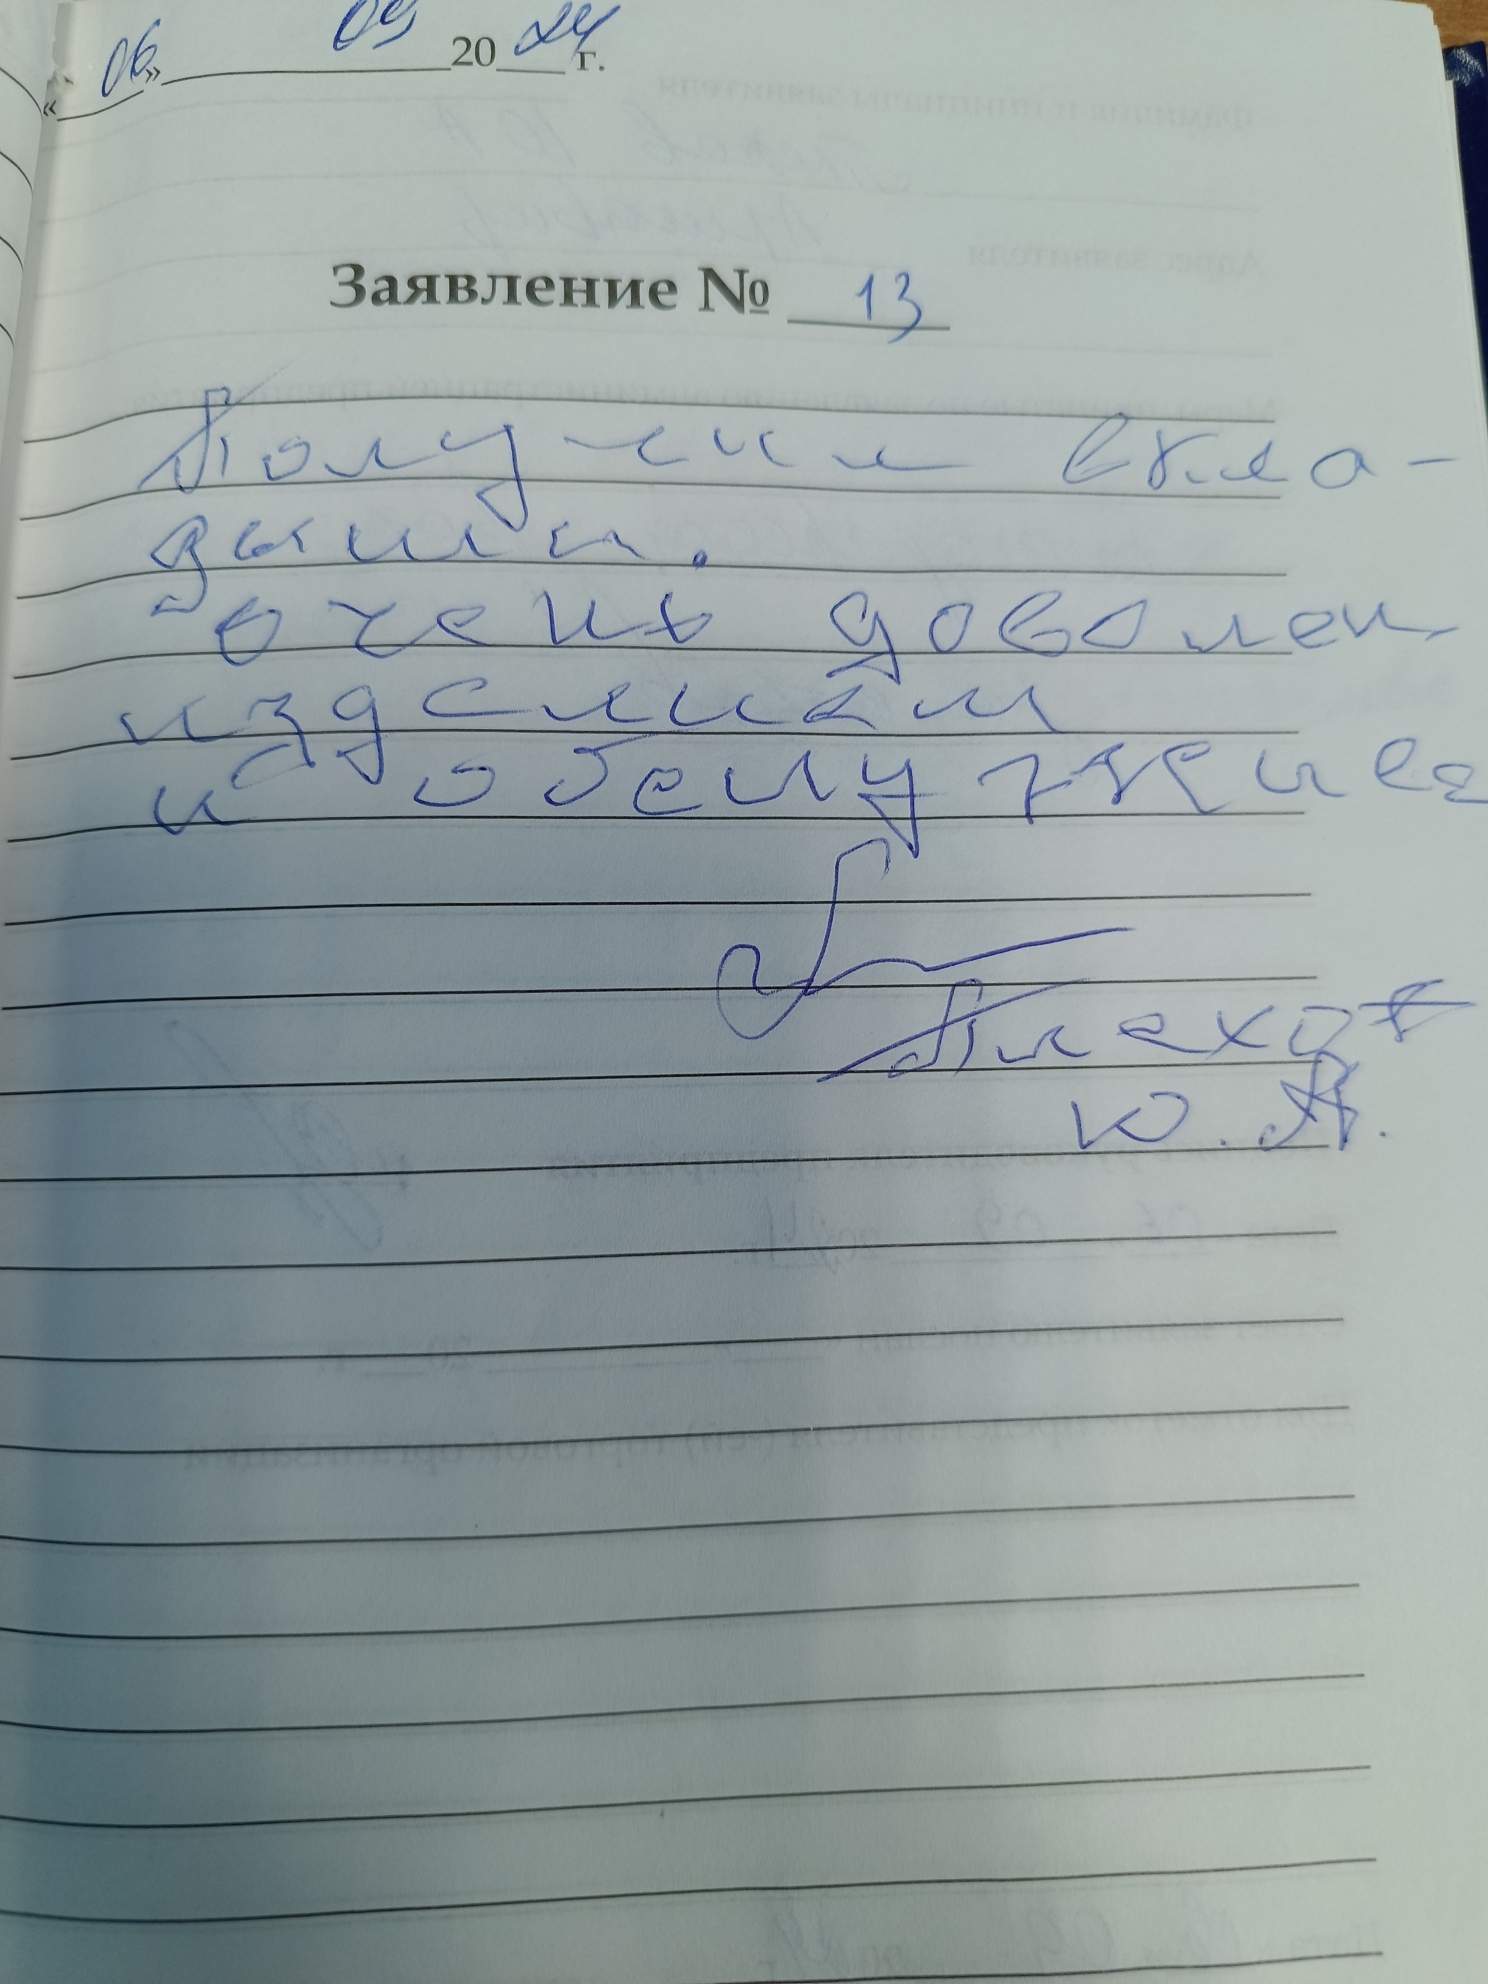 « 06 » 09 20 24 г.
Заявление № 13
Получил вкла-
дыши.
Очень доволен
изделиям
и обслужение
Ю. А.